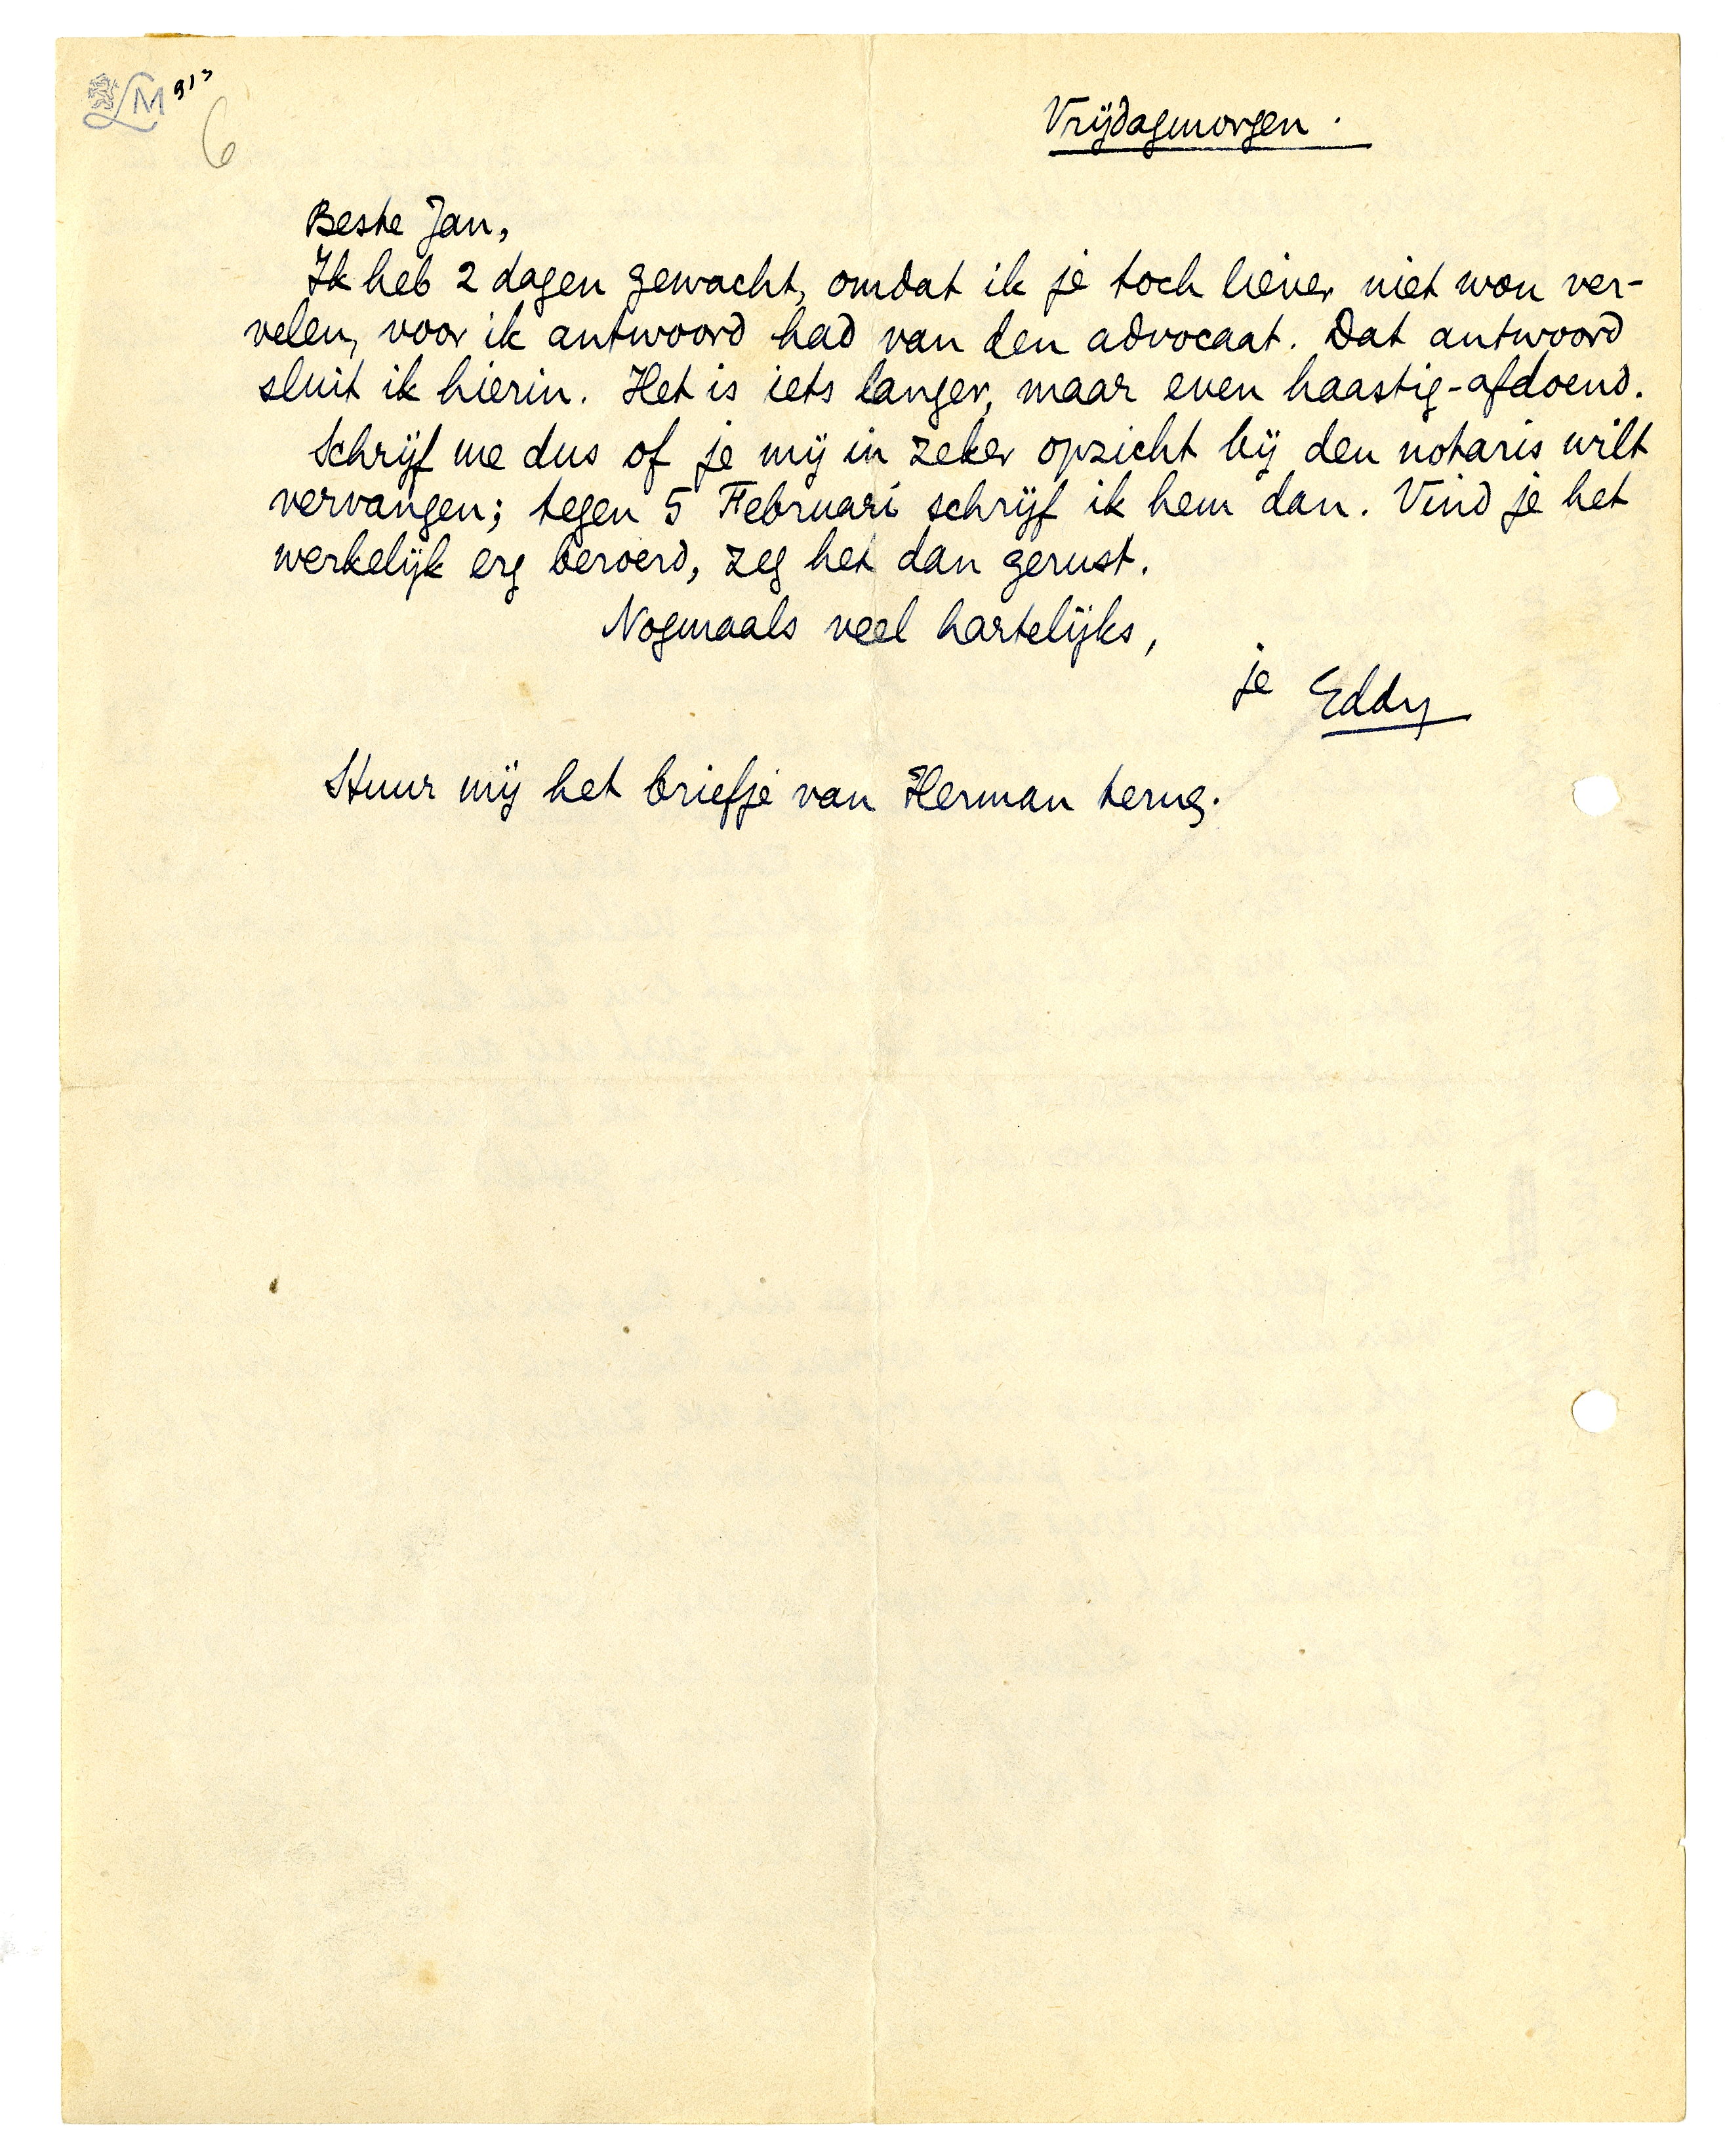 LM 913
6
Vrijdagmorgen.
Beste Jan,
Ik heb 2 dagen gewacht, omdat ik je toch liever niet wou ver-
velen, voor ik antwoord had van den advocaat. Dat antwoord
sluit ik hierin. Het is iets langer, maar even haastig-afdoend.
Schrijf me dus of je mij in zeker opzicht bij den notaris wilt
vervangen; tegen 5 Februari schrijf ik hem dan. Vind je het
werkelijk erg beroerd, zeg het dan gerust.
Nogmaals veel hartelijks,
je Eddy
Stuur mij het briefje van Herman terug.